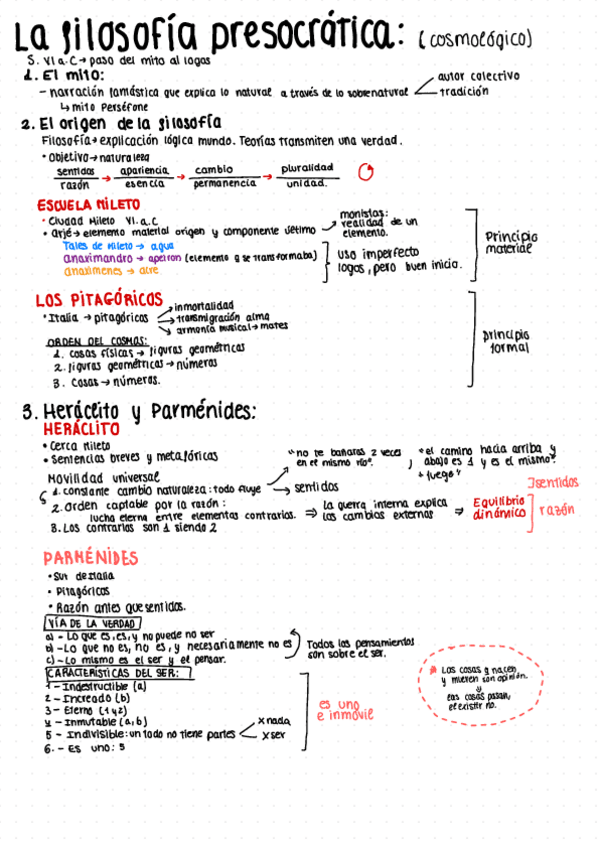 La filosofía presocrática: (cosmológico)
S. VI a.C → paso del mito al logos
1. El mito:
- narración fantástica que explica lo natural a través de lo sobrenatural
autor colectivo
tradición
↳ mito Perséfone
2. El origen de la filosofía
Filosofía → explicación lógica mundo. Teorías transmiten una verdad.
• Objetivo → naturaleza
sentidos → apariencia → cambio → pluralidad
razón esencia permanencia unidad.
ESCUELA MILETO
• Ciudad Mileto VI.a.C
• Arjé → elemento material origen y componente último
monistas:
realidad de un
elemento.
Tales de Mileto → agua
anaximandro → apeiron (elemento q se transformaba)
anaxímenes → aire
uso imperfecto
logos, pero buen inicio.
Principio
material
LOS PITAGÓRICOS
• Italia → pitagóricos
inmortalidad
transmigración alma
armonía musical → mates
ORDEN DEL COSMOS:
1. cosas físicas → figuras geométricas
2. figuras geométricas → números
3. Cosas → números.
principio
formal
3. Heráclito y Parménides:
HERÁCLITO
• Cerca Mileto
• Sentencias breves y metafóricas
"no te bañaras 2 veces
en el mismo río".
, "el camino hacia arriba y
abajo es 1 y es el mismo"
"fuego"
Movilidad universal
1. constante cambio naturaleza: todo fluye → sentidos
2. Orden captable por la razón:
lucha eterna entre elementos contrarios. ⇒ La guerra interna explica
los cambios externos ⇒ Equilibrio
dinámico
sentidos
razón
3. Los contrarios son 1 siendo 2
PARMÉNIDES
• Sur de Italia
• Pitagóricos
• Razón antes que sentidos.
VÍA DE LA VERDAD
a) - Lo que es, es, y no puede no ser
b) - Lo que no es, no es, y necesariamente no es
c) - Lo mismo es el ser y el pensar.
Todos los pensamientos
son sobre el ser.
CARACTERÍSTICAS DEL SER:
1 - Indestructible (a)
2 - Increado (b)
3 - Eterno (1 y 2)
4 - Inmutable (a, b)
5 - Indivisible: un todo no tiene partes
x nada
x ser
6. - Es uno: 5
es uno
e inmóvil
* Las cosas q nacen
y mueren son opinión.
y
las cosas pasan,
el existir no.